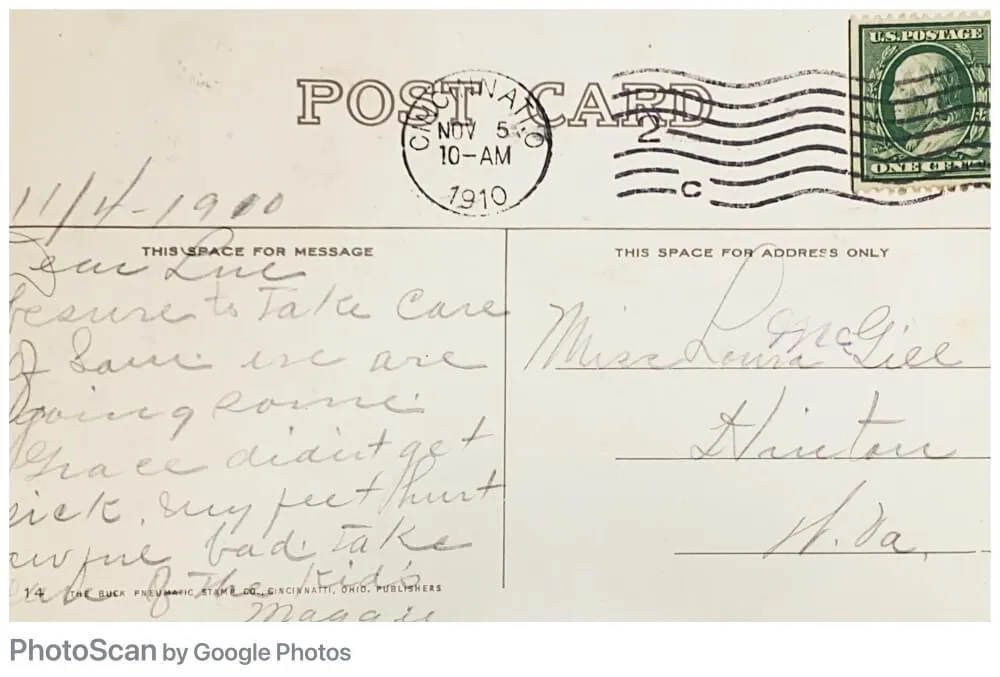 U.S. POSTAGE
POST CARD
CINCINNATI, O
NOV 5
10-AM
1910
2
C
ONE CENT
11/4-1910
THIS SPACE FOR MESSAGE
Dear Lue
besure to Take Care
of Sam we are
going some
Grace didint get
sick. my feet hurt
awful bad. Take
of The Kid's
Maggie
14 THE BUCK PNEUMATIC STAMP CO., CINCINNATTI, OHIO, PUBLISHERS
THIS SPACE FOR ADDRESS ONLY
Miss Loura McGill
Hinton
W. Va.
PhotoScan by Google Photos